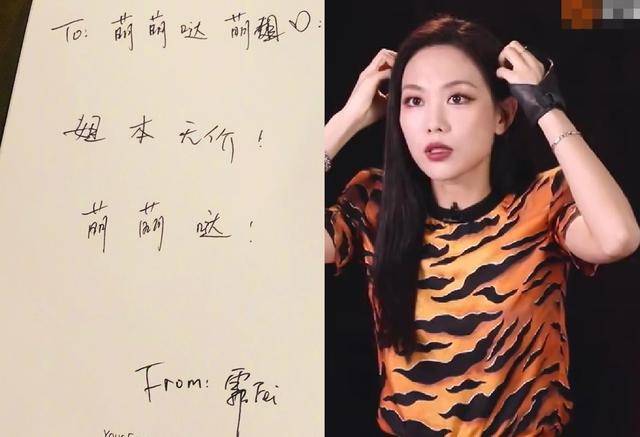 To: 萌萌哒 萌
姐本无价!
萌萌哒!
From: 霏Fei